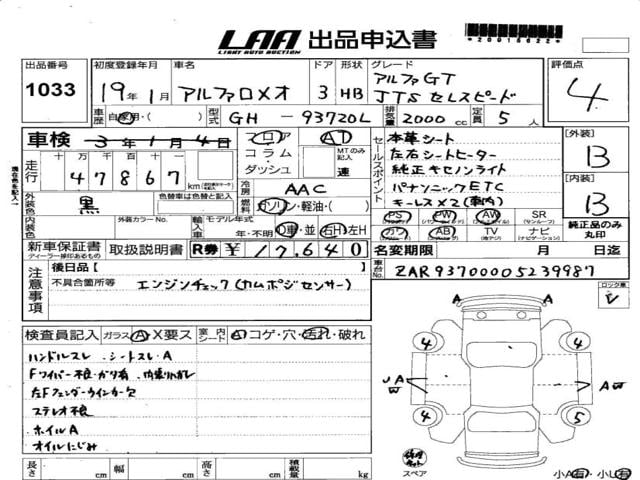 LAA 出品申込書
LIGHT AUTO AUCTION
*20015622*
出品番号 初度登録年月 車名 ドア 形状 グレード 評価点
1033 19年1月 アルファロメオ 3 HB アルファGT
JTS セレスピード 4
車歴 自家用・( ) 型式 GH - 93720L 排気量 2000 cc 定員 5 人
車検 3年1月4日 フロア AT
コラム・ MTのみ記入
ダッシュ 速
走行 十 万 千 百 十
47867 km
セールスポイント 本革シート
左右シートヒーター
純正キセノンライト
パナソニックETC
キーレスX2(車内)
[外装] B
[内装] B
冷房 AAC
外装色 黒 色替車は色替と記入 燃料 ガソリン・軽油・( )
PS PW AW SR
(パワステ) (サンルーフ)
カワ AB TV ナビ
純正品のみ丸印
内装色 外装カラーNo. 輸入車 モデル年式
年・不明 D車・並 右H・左H
新車保証書 取扱説明書 R券 ¥17,640
ディーラー捺印あるもの
名変期限 月 日迄
車台No. ZAR93700005239987
注意事項 後日品[ ]
不具合箇所等 エンジンチェック(カムポジセンサー)
ロック車
レ
検査員記入 ガラス A X要ス 室内シート A コゲ・穴・汚れ・破れ
ハンドルスレ シートスレ・A
Fワイパー不良・ガタ有 内張りハガレ
左Fフェンダーウインカー欠
ステレオ不良
ホイルA
オイルにじみ
A A
4 4
A A
W
4 5
スペア
長さ cm 幅 cm 高さ cm 積載量 kg
小A有・小U有